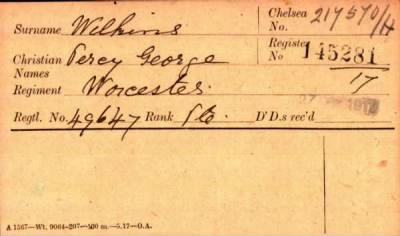 Surname Wilkins Chelsea No. 217570/H
Christian Names Percy George Register No 145281/17
Regiment Worcester.
Regtl. No. 49647 Rank Pte. D'D.s rec'd
A 1567—Wt. 9064-207—500 m.—5.17—O.A.